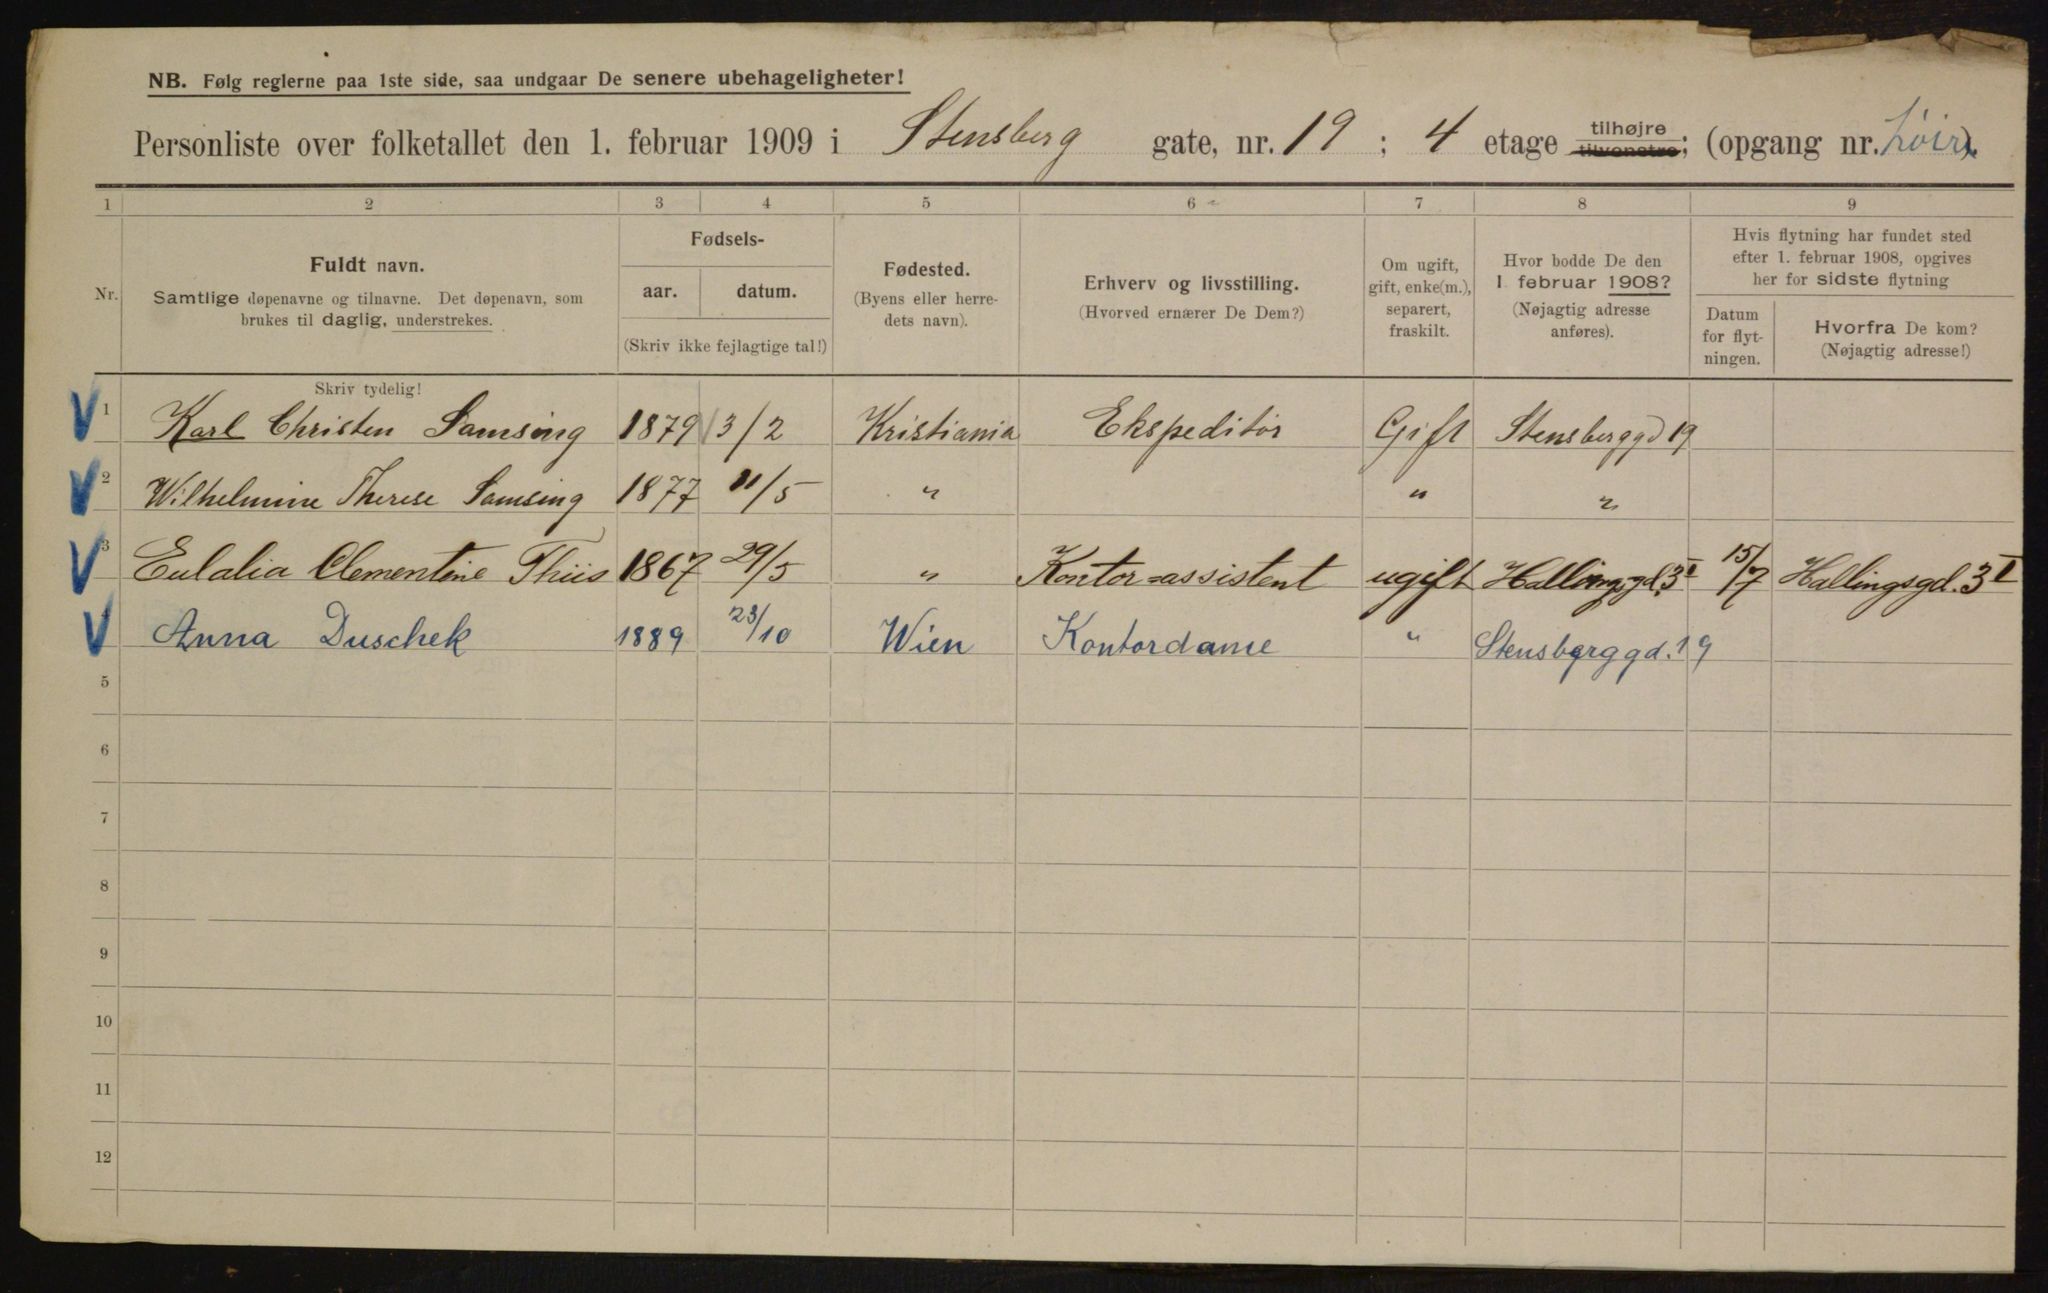 NB. Følg reglerne paa 1ste side, saa undgaar De senere ubehageligheter!
Personliste over folketallet den 1. februar 1909 i Stensberg gate, nr. 19 ; 4 etage tilhøjre tilvenstre; (opgang nr. ).
1 2 3 4 5 6 7 8 9
Nr.
Fuldt navn.
Samtlige døpenavne og tilnavne. Det døpenavn, som
brukes til daglig, understrekes.
Skriv tydelig!
Fødsels-
aar. datum.
(Skriv ikke fejlagtige tal!)
Fødested.
(Byens eller herre-
dets navn).
Erhverv og livsstilling.
(Hvorved ernærer De Dem?)
Om ugift,
gift, enke(m.),
separert,
fraskilt.
Hvor bodde De den
1 februar 1908?
(Nøjagtig adresse
anføres).
Hvis flytning har fundet sted
efter 1. februar 1908, opgives
her for sidste flytning
Datum
for flyt-
ningen.
Hvorfra De kom?
(Nøjagtig adresse!)
1 Karl Christen Samsing 1879 3/2 Kristiania Ekspeditör Gift Stensberggd 19
2 Wilhelmine Therese Samsing 1877 11/5 " " "
3 Eulalia Clementine Thiis 1867 29/5 " Kontor=assistent ugift Hallingsgd. 3 I 15/7 Hallingsgd. 3 I
4 Anna Duschek 1889 23/10 Wien Kontordame " Stensberggd. 19
5
6
7
8
9
10
11
12